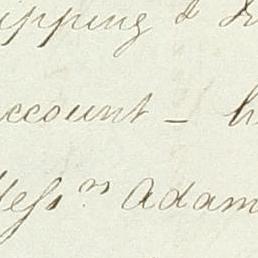 ipping &
ccount -
Mess.rs Adam